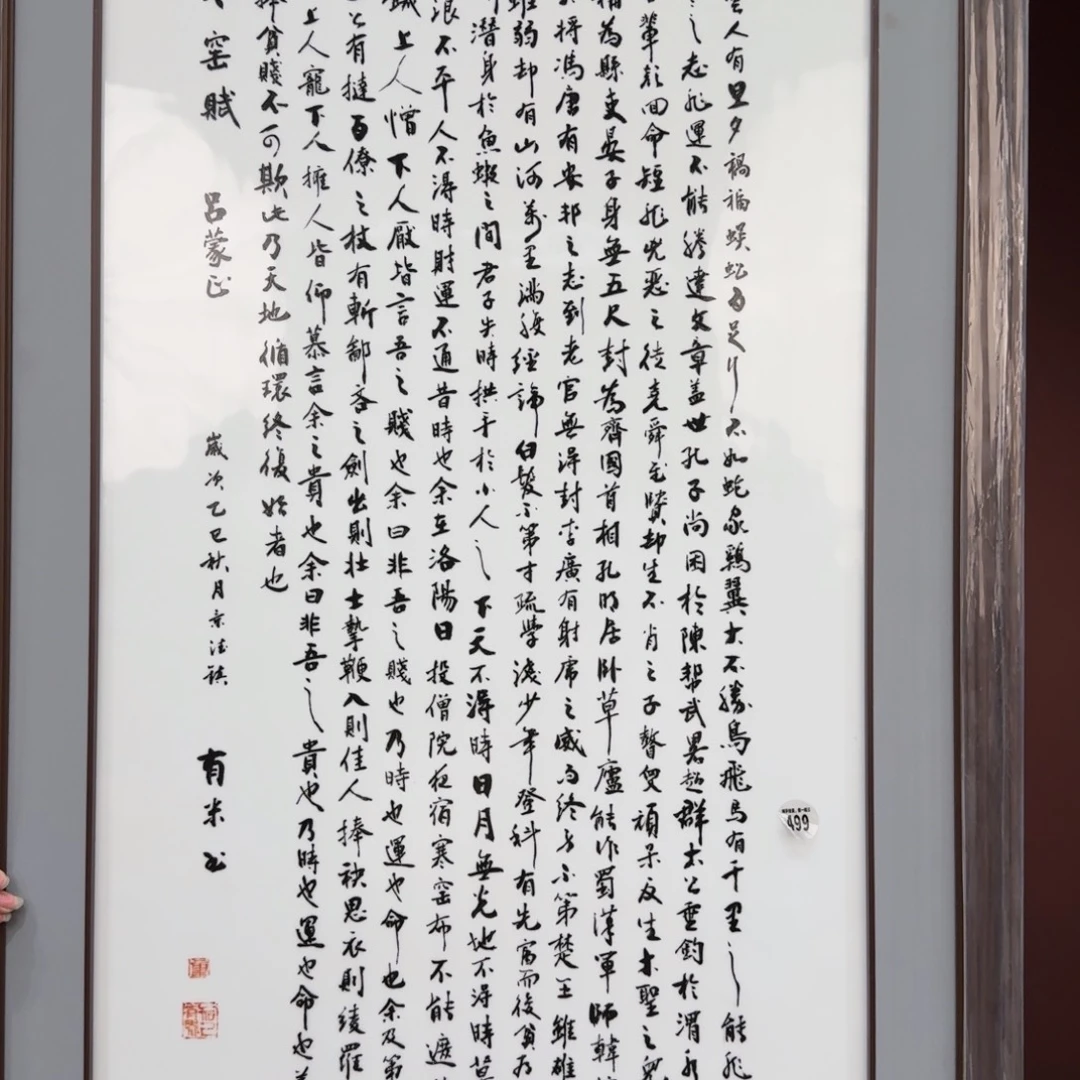 人有旦夕禍福蜈蚣百足行不如蛇家鷄翼大不勝鳥飛馬有千里之能非
之志非運不能騰達文章盖世孔子尚困於陳邦武畧超群太公垂釣於渭水
輩顔回命短非兇惡之徒堯舜至賢却生不肖之子瞽叟頑呆反生大聖之兒
為縣吏晏子身無五尺封為齊國首相孔明居卧草廬能作蜀漢軍師韓
將馮唐有安邦之志到老官無得封李廣有射虎之威到終身不第楚王雖雄
雖弱却有山河萬里滿腹經論白髮不第才疏學淺少年登科有先富而後貧有
潛身於魚蝦之間君子失時拱手於小人之下天不得時日月無光地不得時草
浪不平人不得時財運不通昔時也余在洛陽日投僧院夜宿寒窑布不能遮
上人憎下人厭皆言吾之賤也余曰非吾之賤也乃時也運也命也余及第
有撻百僚之杖有斬鄙吝之劍出則壯士摯鞭入則佳人捧秧思衣則綾羅
上人寵下人擁人皆仰慕言余之貴也余曰非吾之貴也乃時也運也命也
貧賤不可欺此乃天地循環終復始者也
窑賦
呂蒙正
歲次乙巳秋月景德鎮
有米书
499